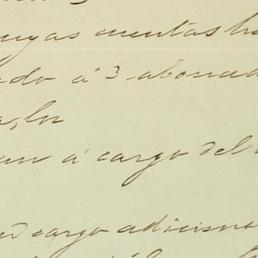 cuyas cuentas ha
ado á 3 abonad
a, los
an á cargo del
cargo adiciona